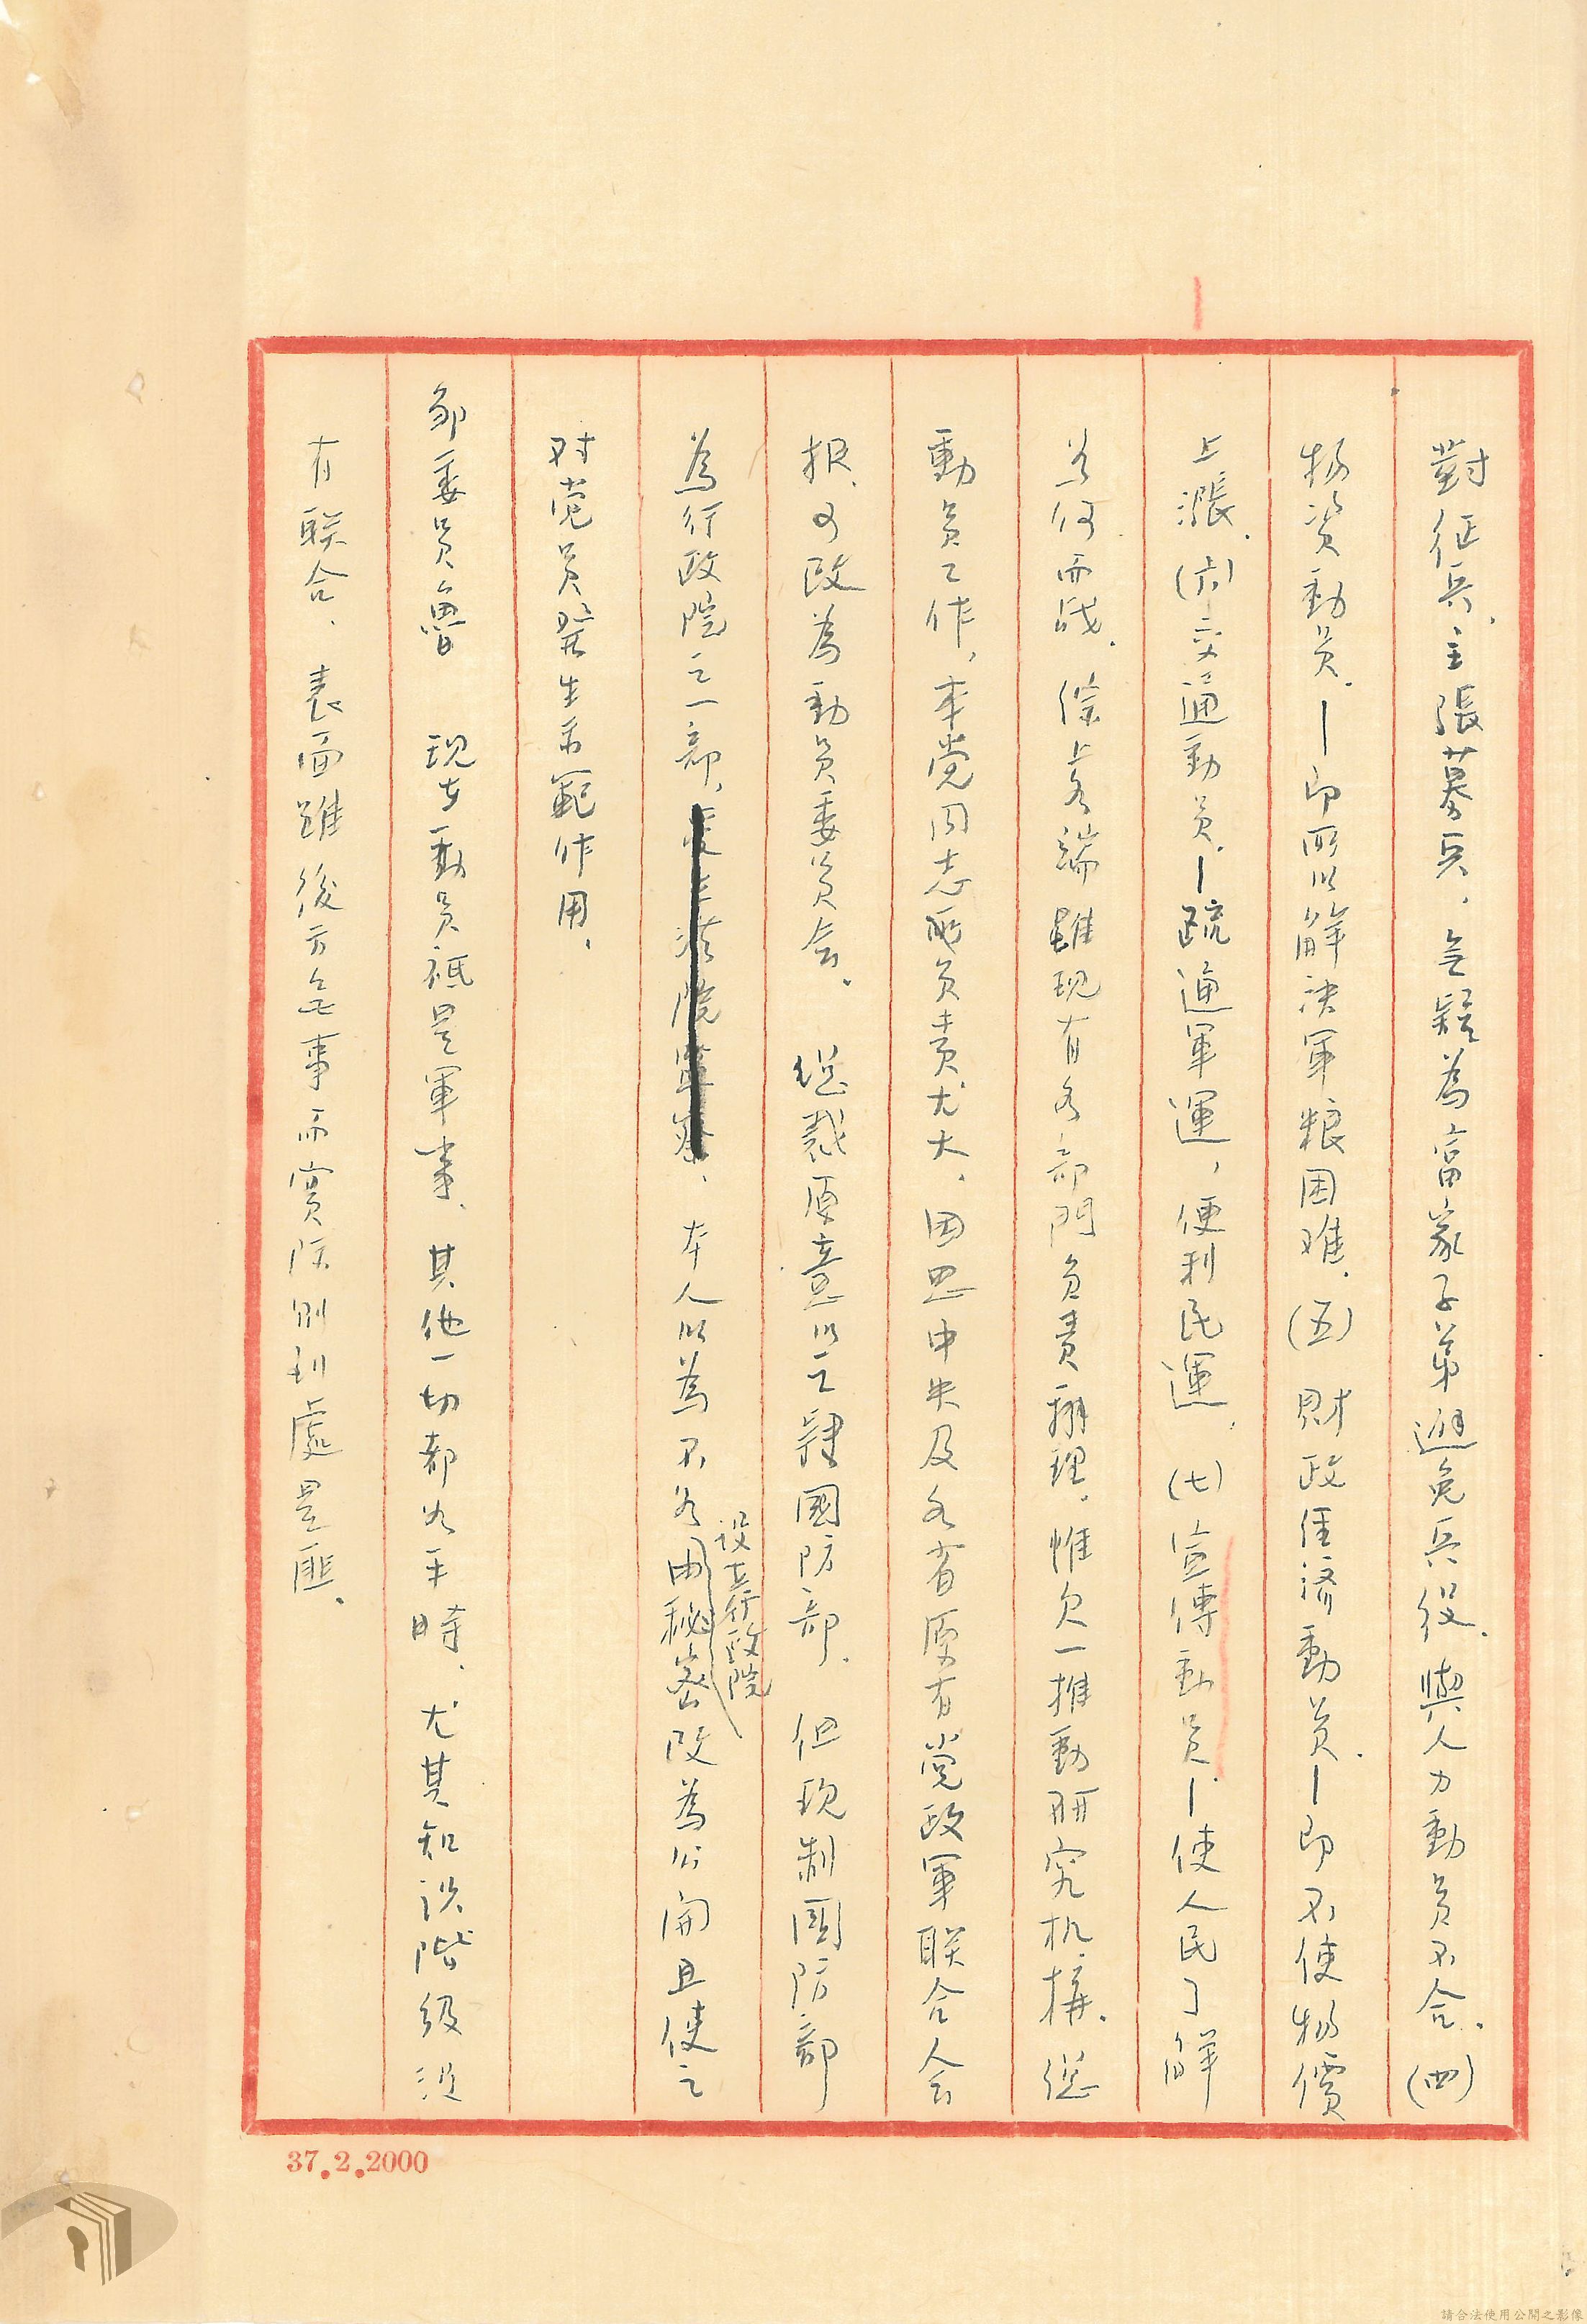 對征兵．主張募兵．無疑為富家子弟避免兵役．與人力動員不合．(四)
物資動員．—即所以解決軍粮困难．(五)財政经济動員．—即不使物價
上漲．(六)交通動員．—疏通軍運，便利民運．(七)宣傳動員．—使人民了解
為何而战．综上各端雖现有各部門負責辦理．惟欠一推動研究机構．總
動員工作，本党同志所负责尤大．因思中央及各省原有党政軍联合人会
报．可改為動員委員会．總裁原意以之隸國防部．但现制國防部
為行政院之一部，本人以為不如由秘密改為公開且使之
設立行政院
对党员發生示範作用．
邹委員魯　现在動員祗是軍事．其他一切都如平時．尤其知识階级沒
有联合．表面雖後方無事而實际則到處是匪．
37.2.2000
請合法使用公開之影像